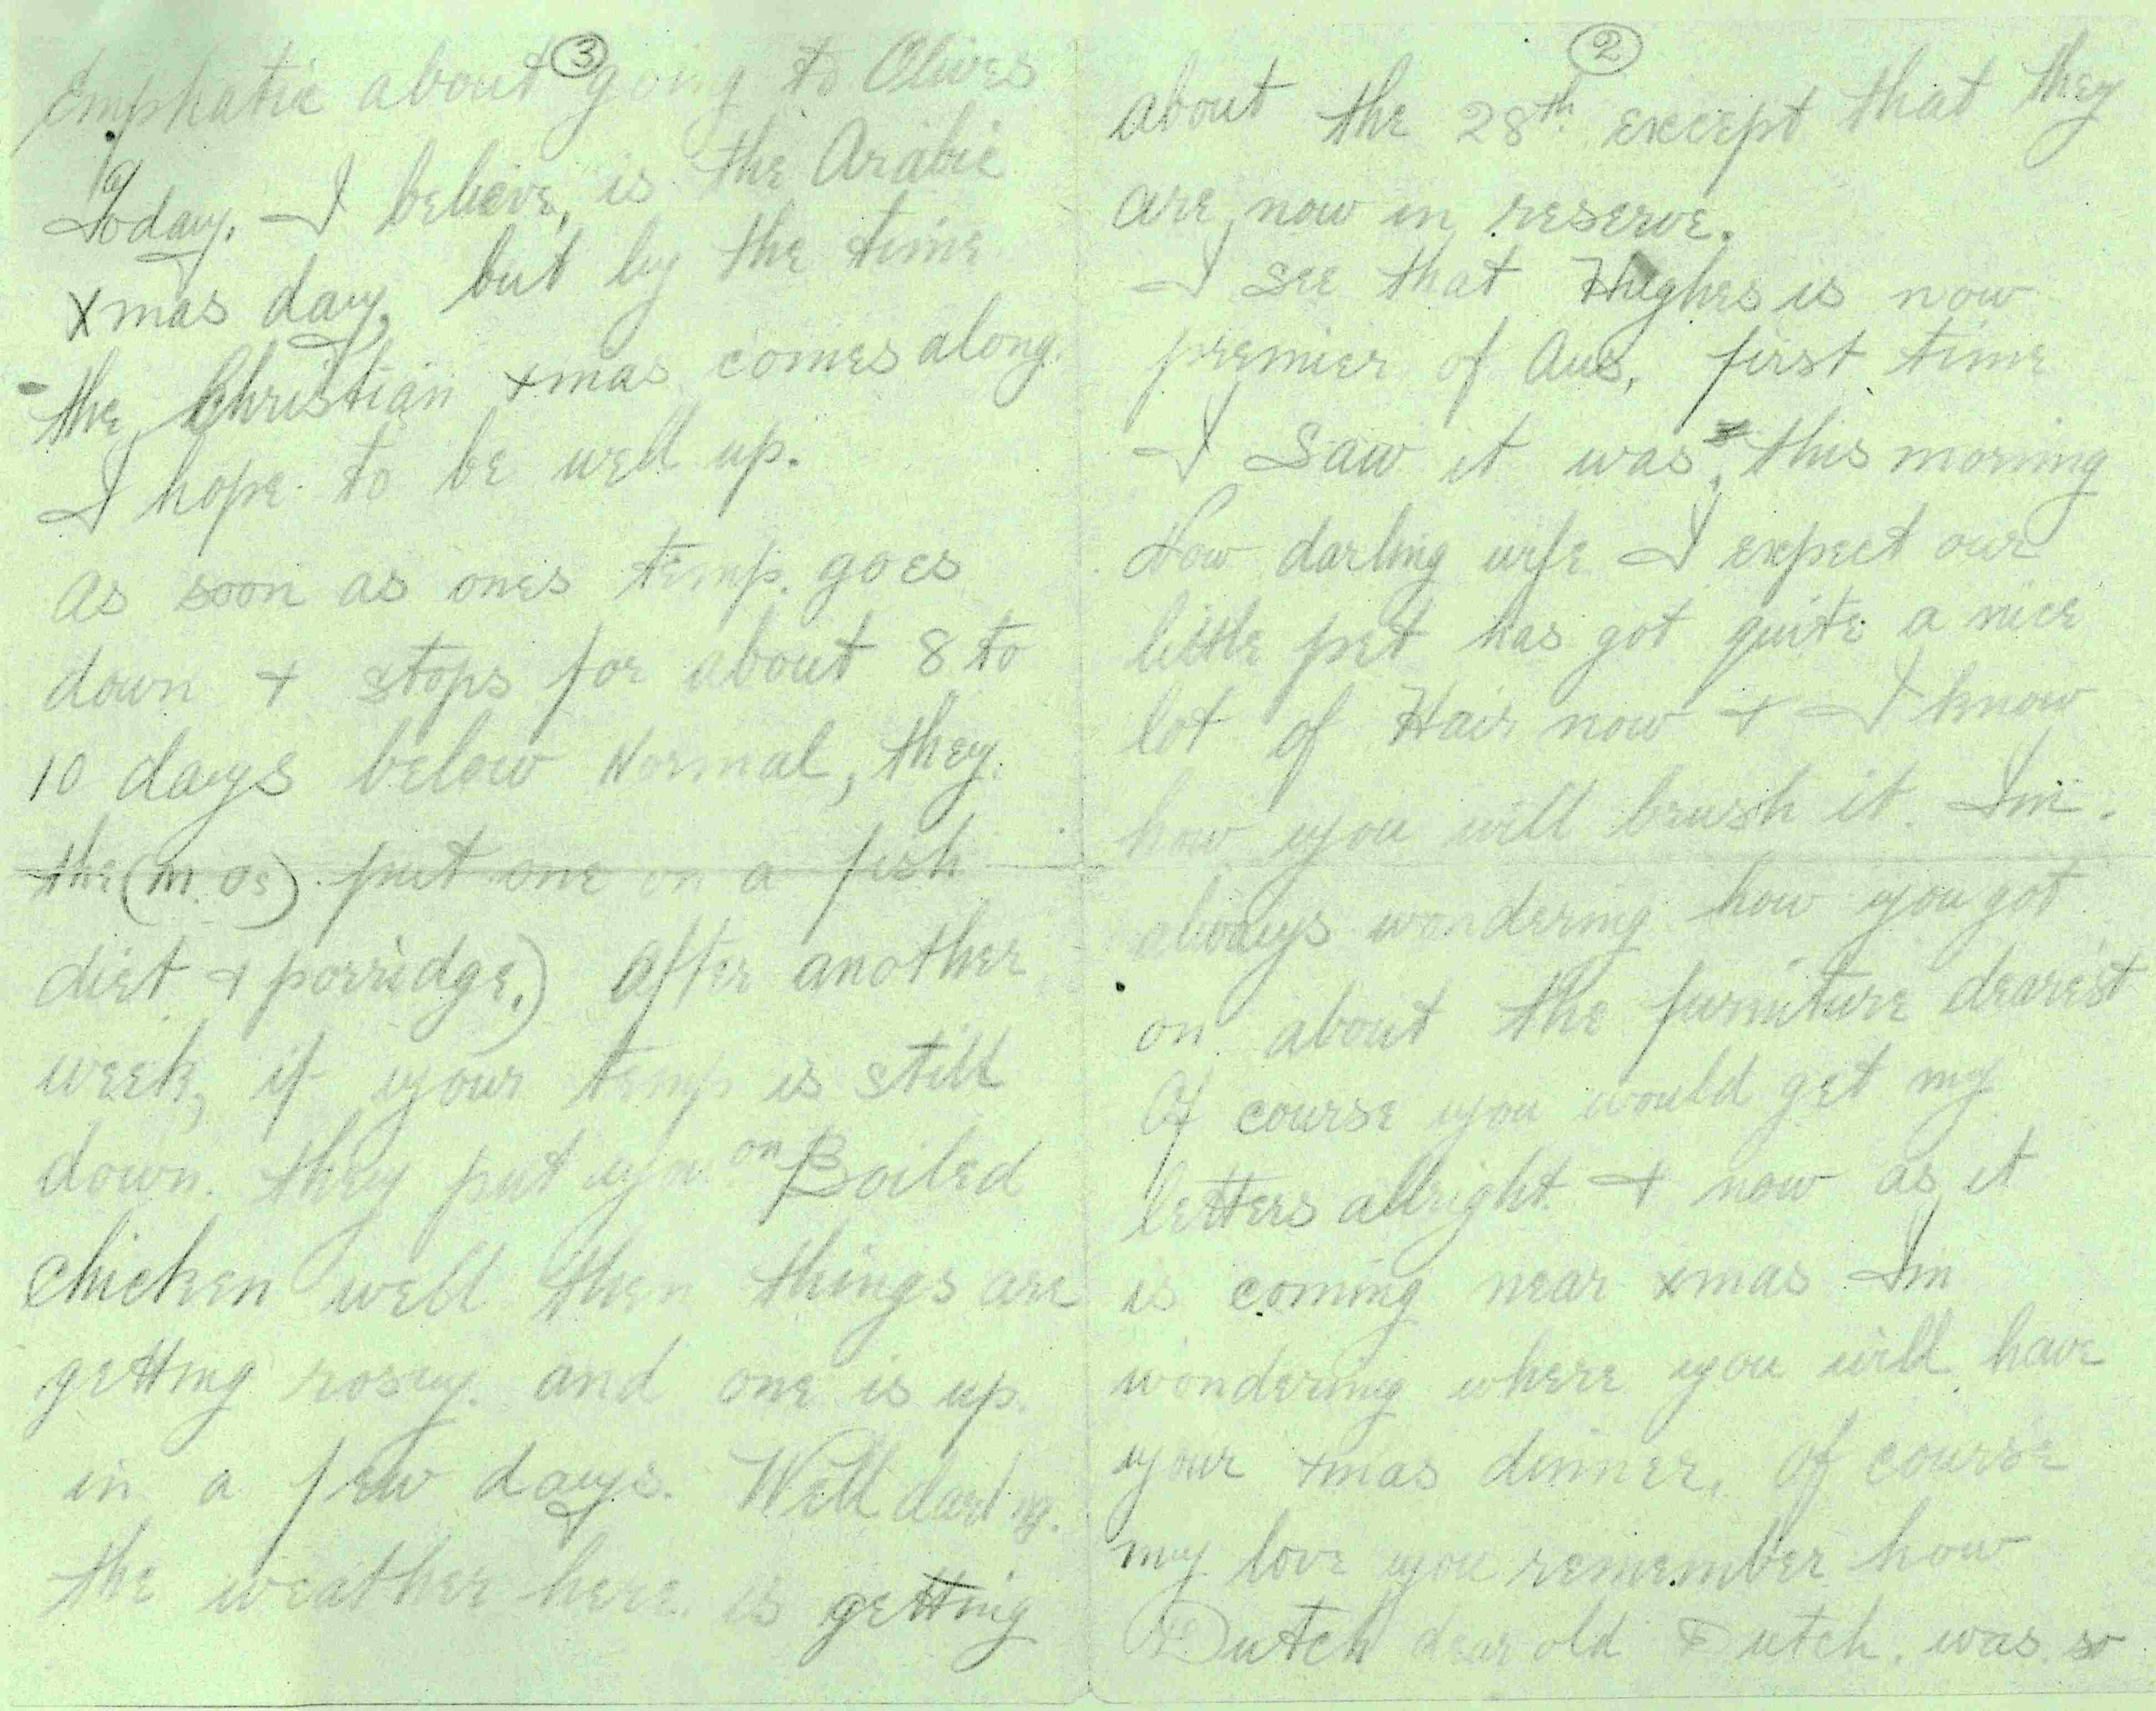 ②
about the 28th except that they
are now in reserve.
I see that Hughes is now
premier of Aus, first time
I saw it was, this morning
Now darling wife I expect our
little pet has got quite a nice
lot of Hair now + I know
how you will brush it. Im
always wondering how you got
on about the furniture dearest
Of course you would get my
letters allright + now as it
is coming near xmas Im
wondering where you will have
your xmas dinner, of course
my love you remember how
Dutch dear old Dutch. was so
③
Emphatic about going to Olives
Today. I believe, is the Arabic
xmas day, but by the time
the Christian xmas comes along.
I hope to be well up.
As soon as ones temp. goes
down + stops for about 8 to
10 days below Normal, they.
the (m.os) put one on a fish
diet + porridge.) After another
week, if your temp is still
down. they put you on Boiled
chicken well then things are
getting rosey. and one is up.
in a few days. Well darling.
the weather here. is getting